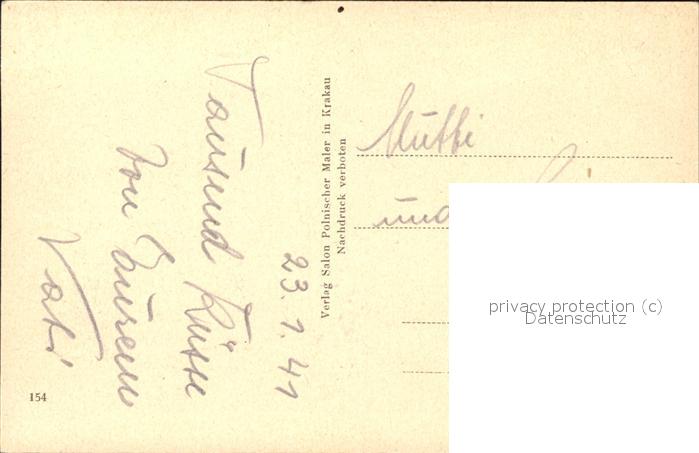 23. 1. 41
Tausend Küsse
von Eurem
Vati
Verlag Salon Polnischer Maler in Krakau
Nachdruck verboten
Mutti
und
privacy protection (c)
Datenschutz
154